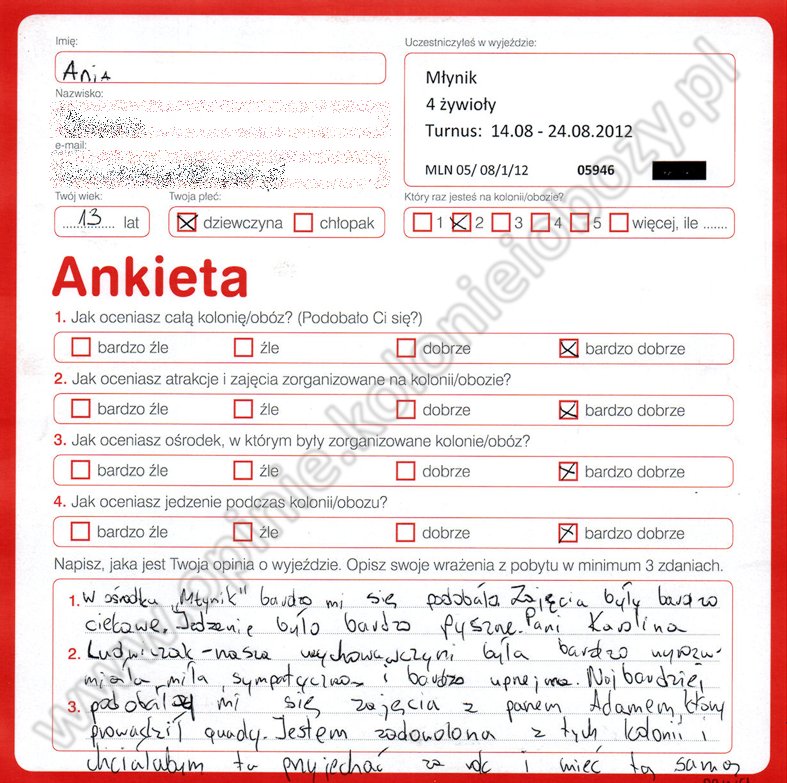 Imię:
Ania
Uczestniczyłeś w wyjeździe:
Młynik
4 żywioły
Turnus: 14.08 - 24.08.2012
MLN 05/ 08/1/12 05946
Nazwisko:
e-mail:
Twój wiek:
13 lat
Twoja płeć:
dziewczyna chłopak
Który raz jesteś na kolonii/obozie?
1 2 3 4 5 więcej, ile .......
Ankieta
1. Jak oceniasz całą kolonię/obóz? (Podobało Ci się?)
bardzo źle źle dobrze bardzo dobrze
2. Jak oceniasz atrakcje i zajęcia zorganizowane na kolonii/obozie?
bardzo źle źle dobrze bardzo dobrze
3. Jak oceniasz ośrodek, w którym były zorganizowane kolonie/obóz?
bardzo źle źle dobrze bardzo dobrze
4. Jak oceniasz jedzenie podczas kolonii/obozu?
bardzo źle źle dobrze bardzo dobrze
Napisz, jaka jest Twoja opinia o wyjeździe. Opisz swoje wrażenia z pobytu w minimum 3 zdaniach.
1. W ośrodku „Młynik" bardzo mi się podobało. Zajęcia były bardzo
ciekawe. Jedzenie było bardzo pyszne. Pani Karolina
2. Ludwiczak - nasza wychowawczyni była bardzo wyrozu-
miała, miła, sympatyczna i bardzo uprzejma. Najbardziej
3. podobały mi się zajęcia z panem Adamem, który
prowadził quady. Jestem zadowolona z tych kolonii i
chciałabym tu przyjechać za rok i mieć tą samą
www.opinie.kolonieiobozy.pl